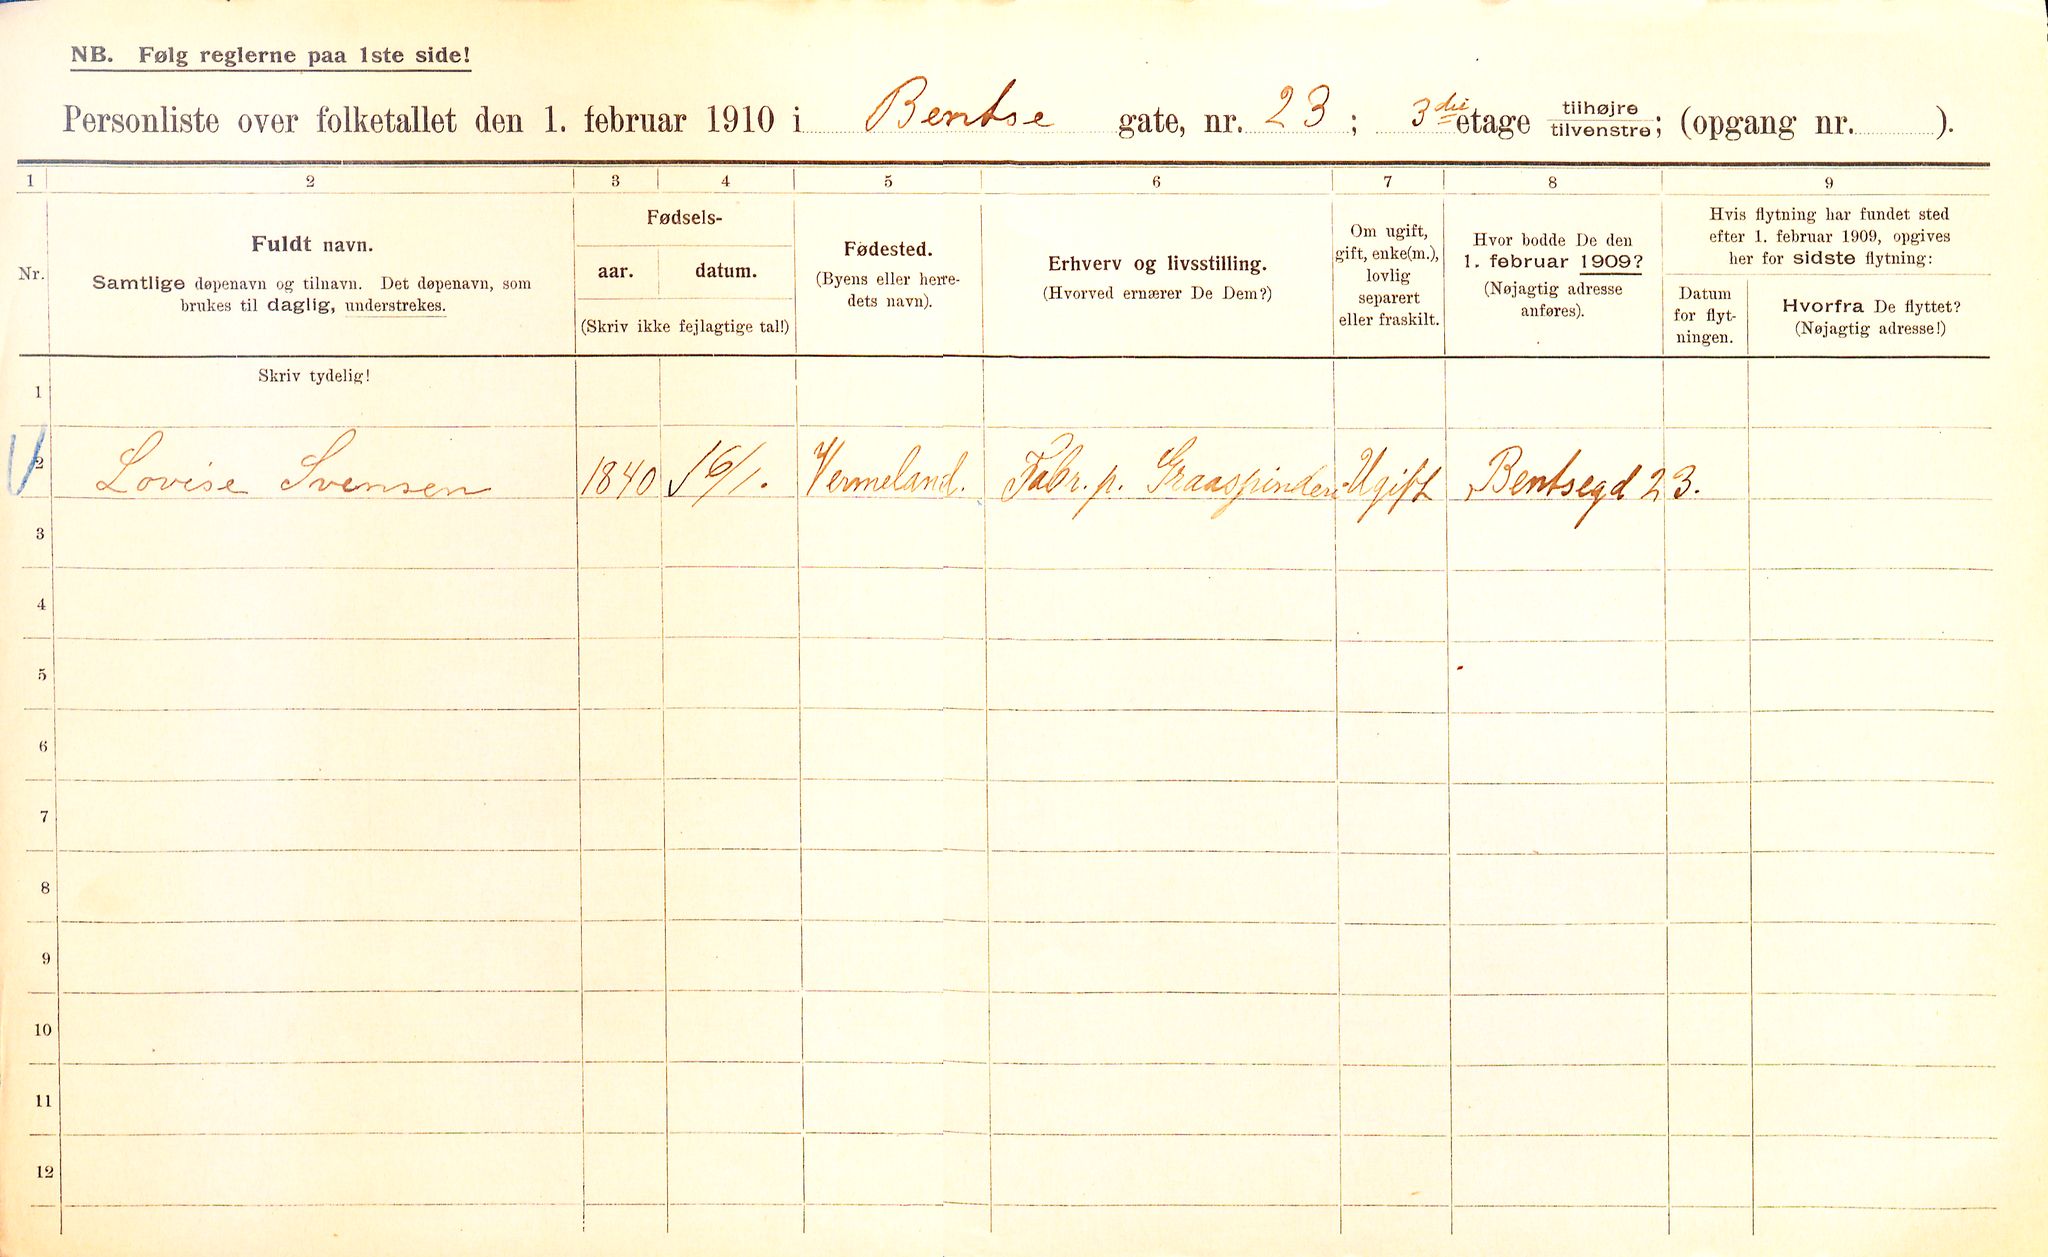 NB. Følg reglerne paa 1ste side!
Personliste over folketallet den 1. februar 1910 i Bentse gate, nr. 23; 3die etage tilhøjre/tilvenstre; (opgang nr. ).
1 2 3 4 5 6 7 8 9
Nr.
Fuldt navn.
Samtlige døpenavn og tilnavn. Det døpenavn, som
brukes til daglig, understrekes.
Fødsels-
aar. datum.
(Skriv ikke fejlagtige tal!)
Fødested.
(Byens eller herre-
dets navn).
Erhverv og livsstilling.
(Hvorved ernærer De Dem?)
Om ugift,
gift, enke(m.),
lovlig
separert
eller fraskilt.
Hvor bodde De den
1. februar 1909?
(Nøjagtig adresse
anføres).
Hvis flytning har fundet sted
efter 1. februar 1909, opgives
her for sidste flytning:
Datum
for flyt-
ningen.
Hvorfra De flyttet?
(Nøjagtig adresse!)
Skriv tydelig!
1
2 Lovise Svensen 1840 16/1. Vermeland. Fabr. p. Graaspinderi Ugift Bentsegd 23.
3
4
5
6
7
8
9
10
11
12